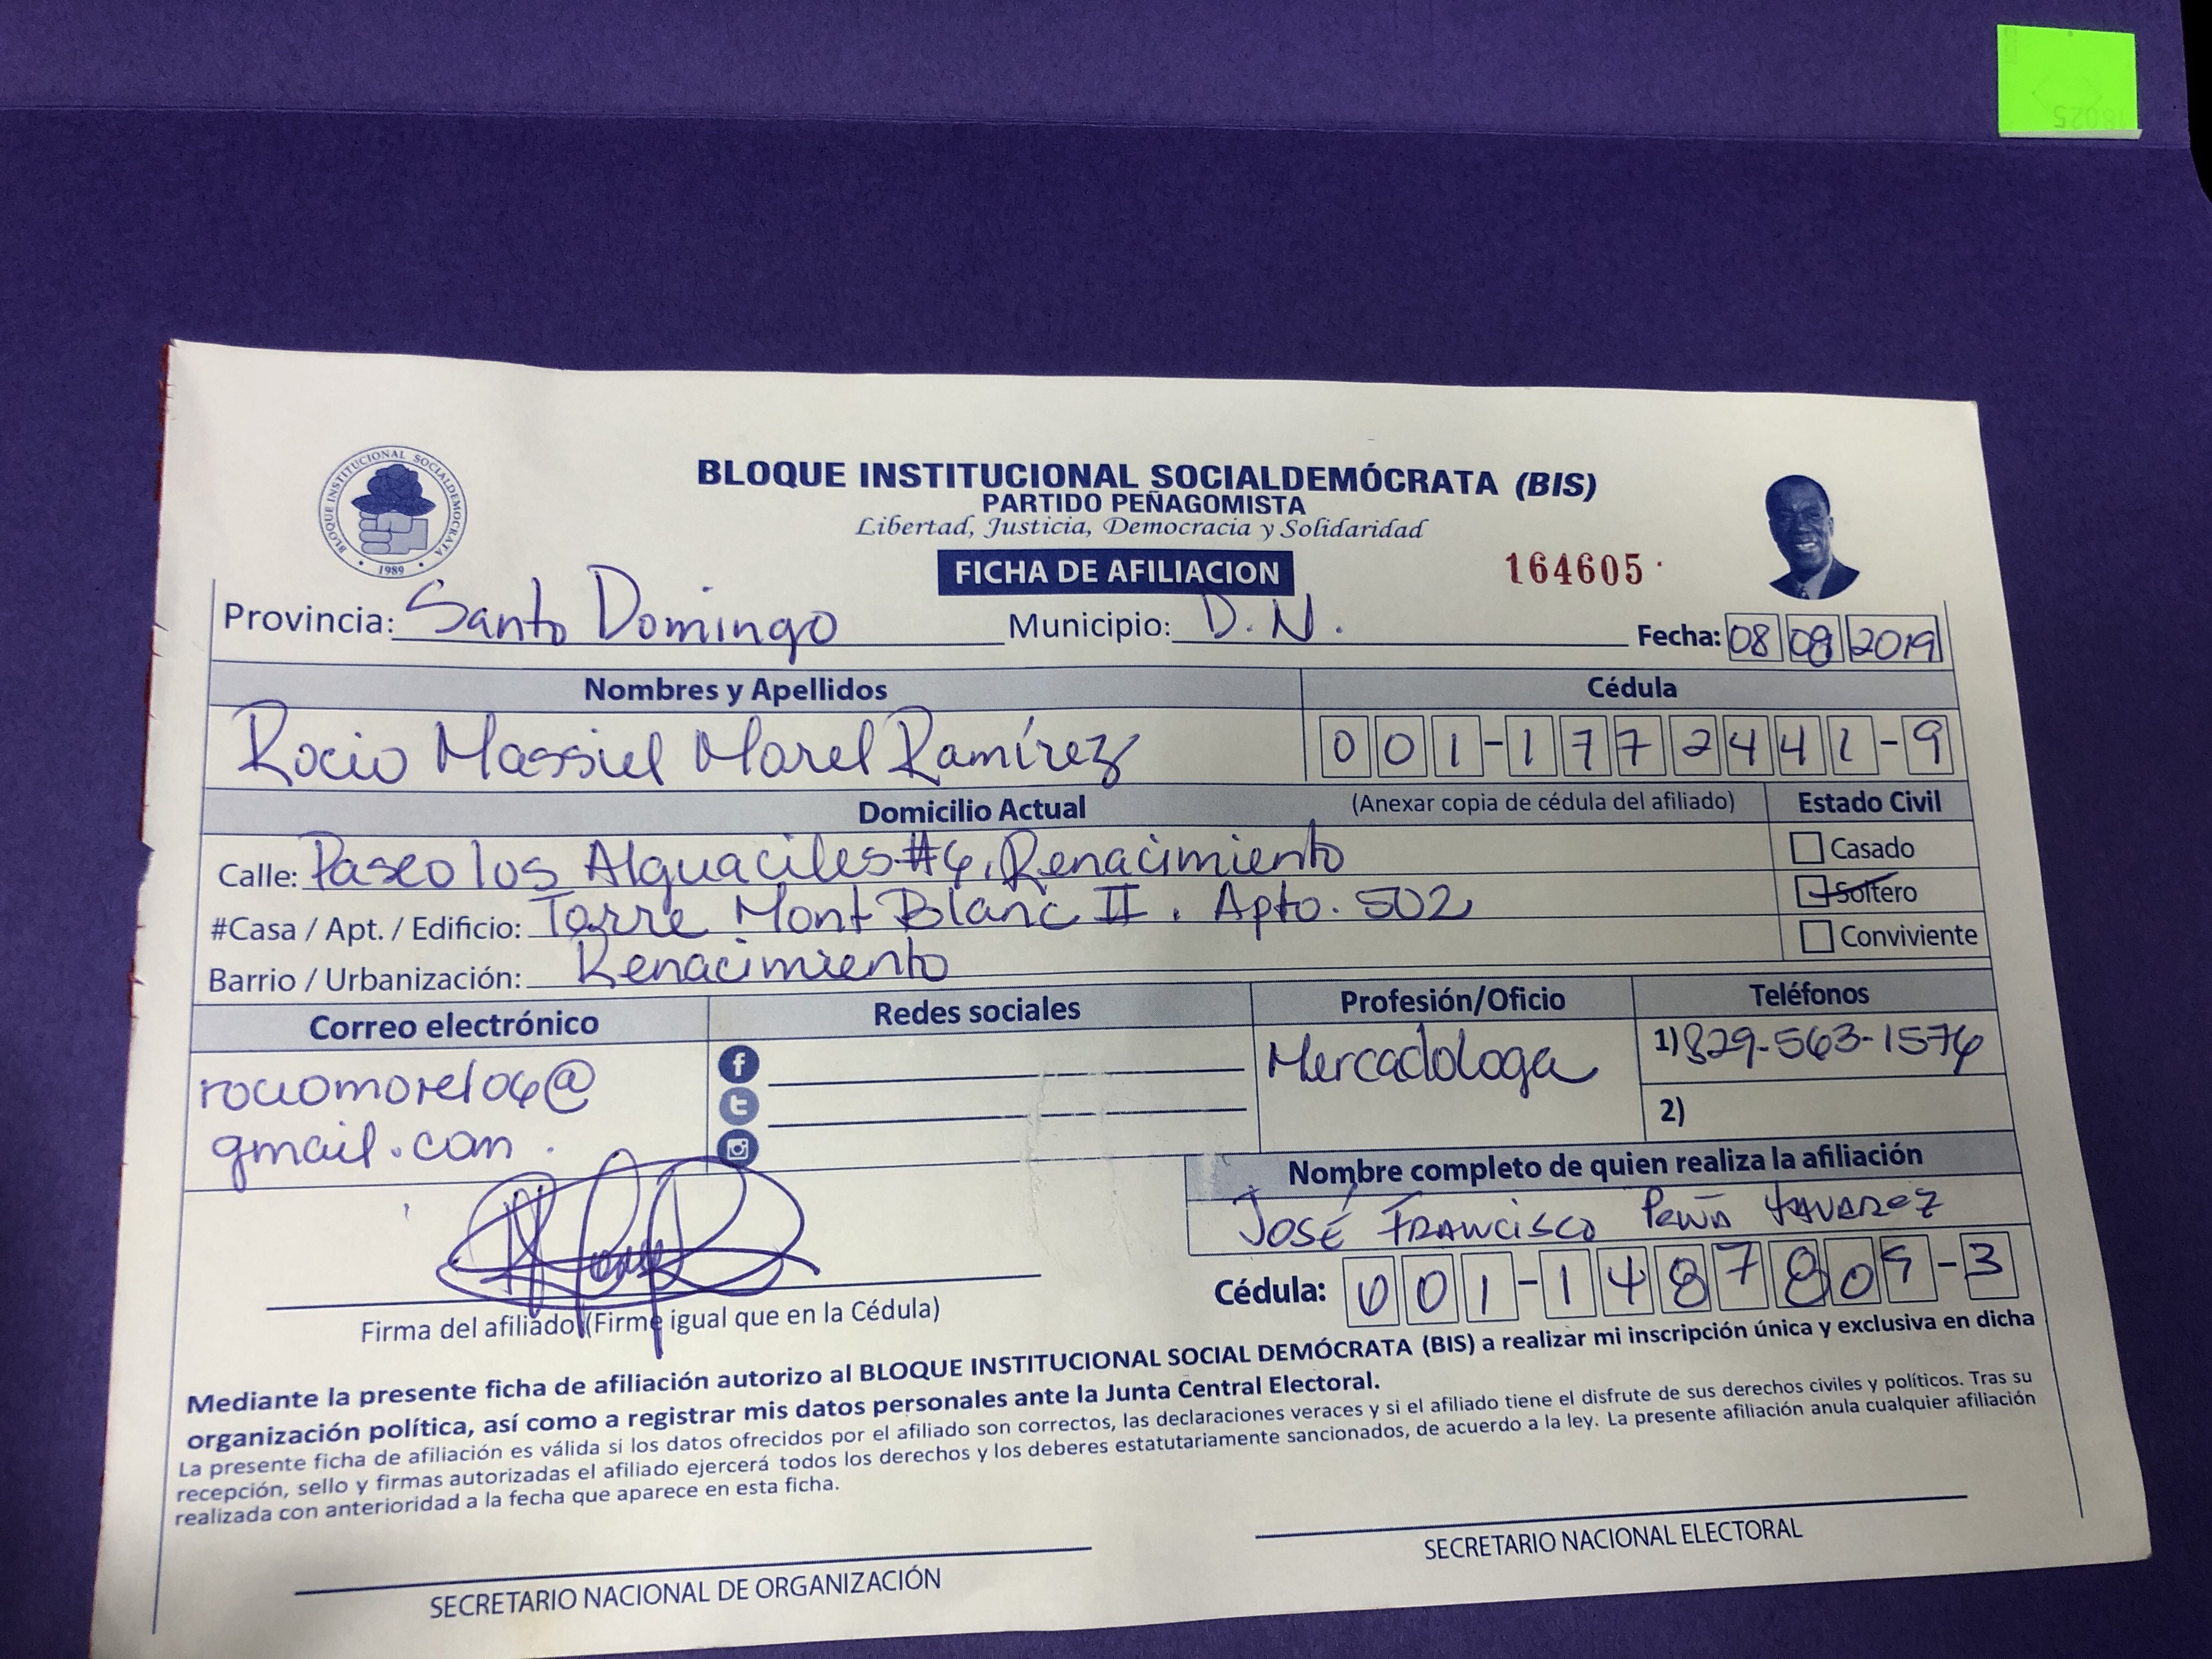 BLOQUE INSTITUCIONAL SOCIALDEMÓCRATA
1989
BLOQUE INSTITUCIONAL SOCIALDEMÓCRATA (BIS)
PARTIDO PEÑAGOMISTA
Libertad, Justicia, Democracia y Solidaridad
FICHA DE AFILIACION 164605
Provincia: Santo Domingo Municipio: D.N. Fecha: 08 08 2019
Nombres y Apellidos Cédula
Rocio Massiel Morel Ramírez 001-1772441-9
Domicilio Actual (Anexar copia de cédula del afiliado) Estado Civil
Calle: Paseo los Alguaciles #6, Renacimiento Casado
#Casa / Apt. / Edificio: Torre Mont Blanc II. Apto. 502 Soltero
Barrio / Urbanización: Renacimiento Conviviente
Correo electrónico Redes sociales Profesión/Oficio Teléfonos
rociomorel06@ Mercadologa 1) 829-563-1576
gmail.com 2)
Nombre completo de quien realiza la afiliación
JOSÉ FRANCISCO PEÑA TAVAREZ
Cédula: 001-1487809-3
Firma del afiliado (Firme igual que en la Cédula)
Mediante la presente ficha de afiliación autorizo al BLOQUE INSTITUCIONAL SOCIAL DEMÓCRATA (BIS) a realizar mi inscripción única y exclusiva en dicha
organización política, así como a registrar mis datos personales ante la Junta Central Electoral.
La presente ficha de afiliación es válida si los datos ofrecidos por el afiliado son correctos, las declaraciones veraces y si el afiliado tiene el disfrute de sus derechos civiles y políticos. Tras su
recepción, sello y firmas autorizadas el afiliado ejercerá todos los derechos y los deberes estatutariamente sancionados, de acuerdo a la ley. La presente afiliación anula cualquier afiliación
realizada con anterioridad a la fecha que aparece en esta ficha.
SECRETARIO NACIONAL DE ORGANIZACIÓN SECRETARIO NACIONAL ELECTORAL